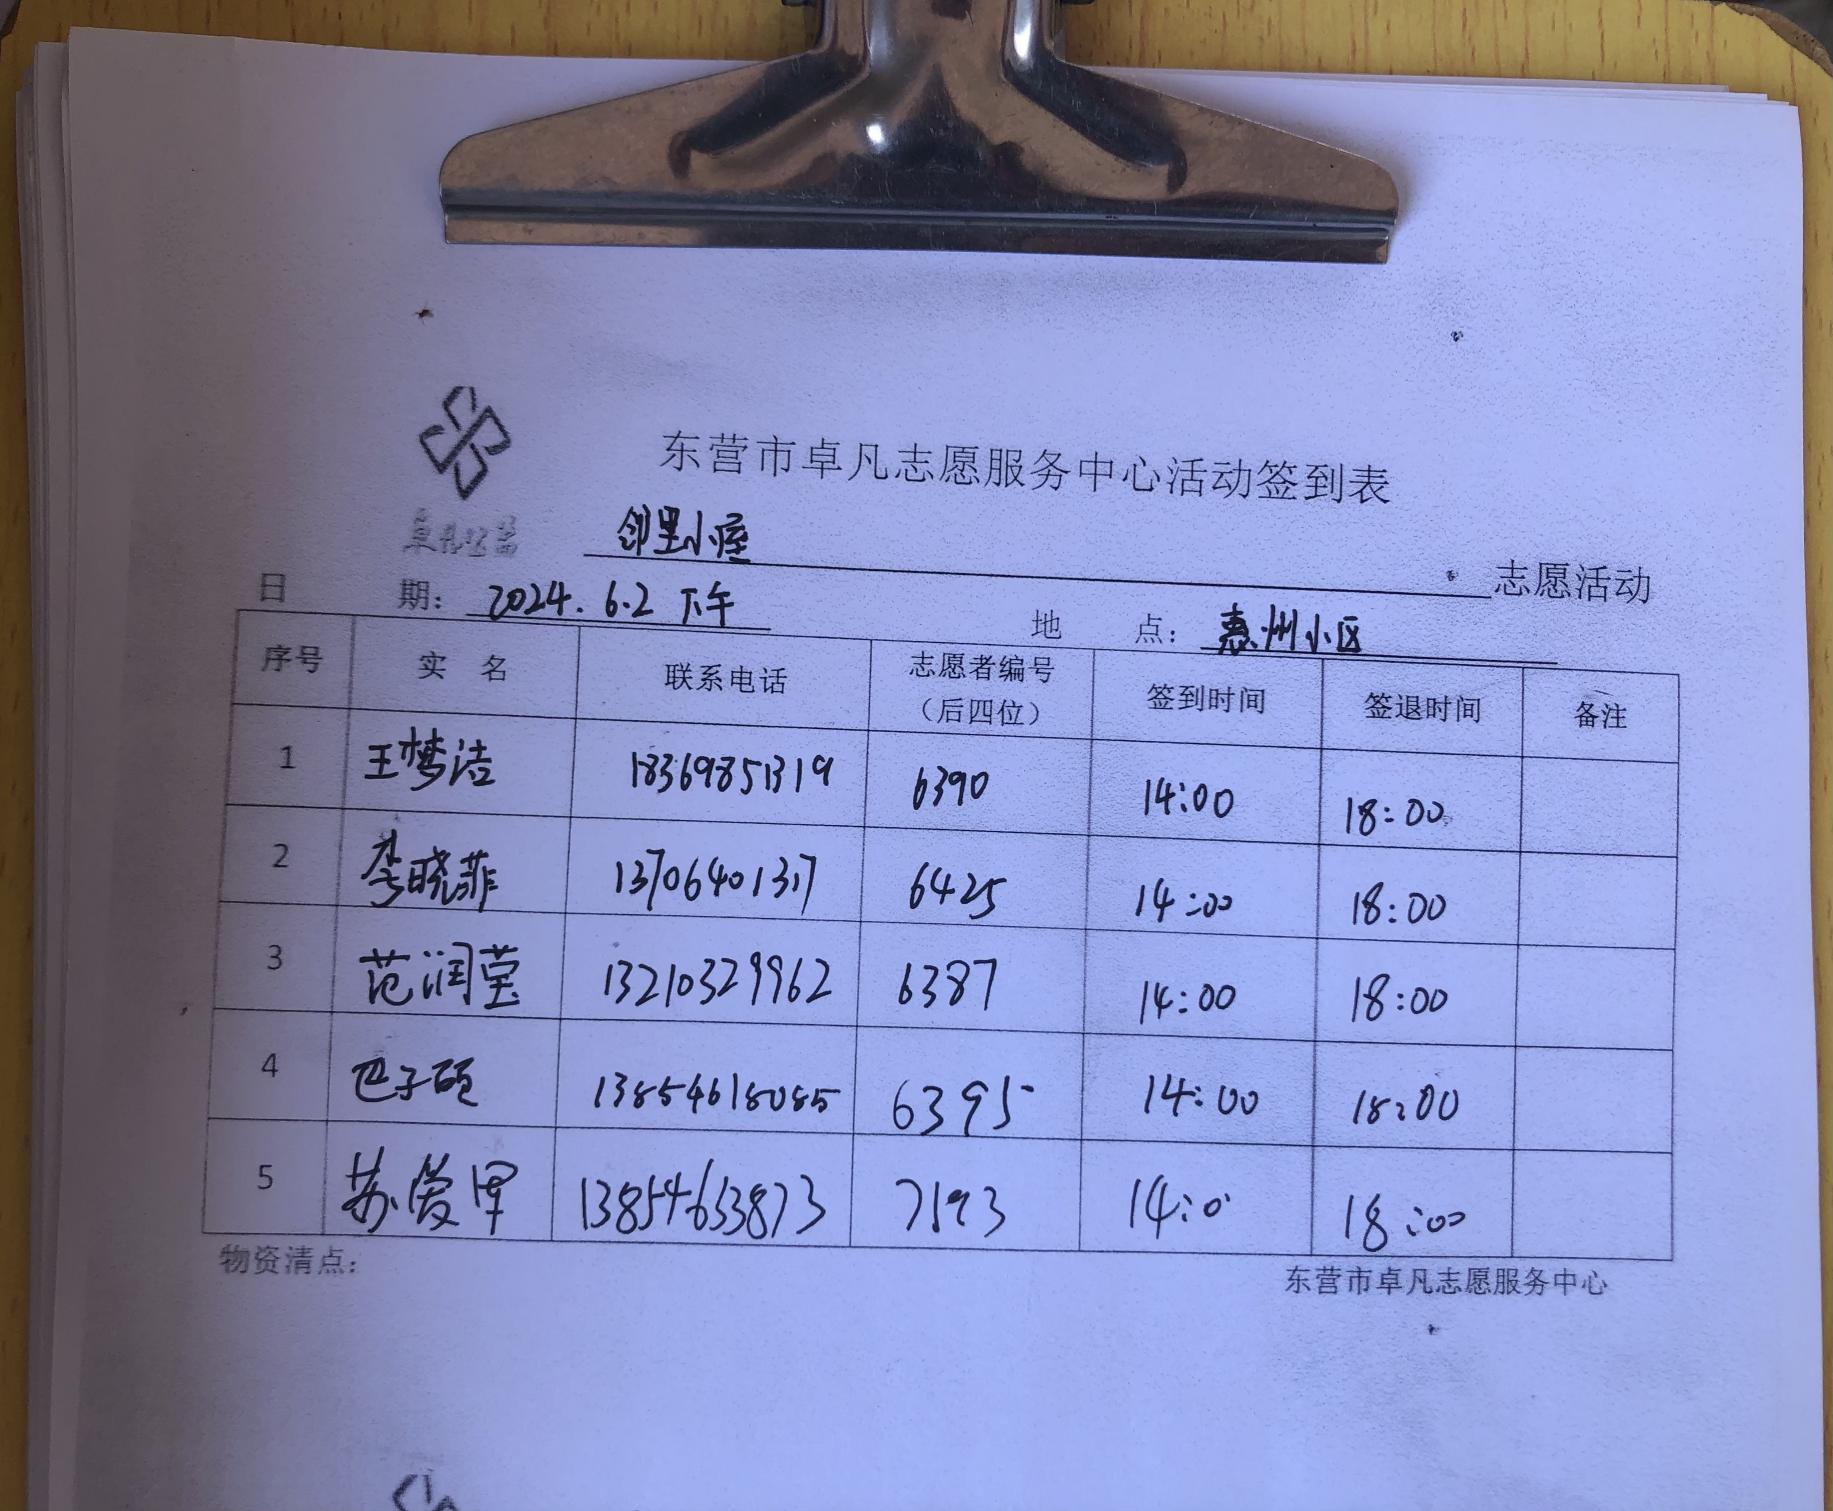 东营市卓凡志愿服务中心活动签到表
卓凡公益
邻里小屋 志愿活动
日 期: 2024.6.2 下午 地 点: 惠州小区
序号 实 名 联系电话 志愿者编号（后四位） 签到时间 签退时间 备注
1 王梦洁 18369851319 6390 14:00 18:00
2 李晓菲 13706401317 6425 14:00 18:00
3 范润莹 13210329962 6387 14:00 18:00
4 巴子硕 13854618085 6395 14:00 18:00
5 苏爱军 13854653873 7193 14:0 18:00
物资清点:
东营市卓凡志愿服务中心